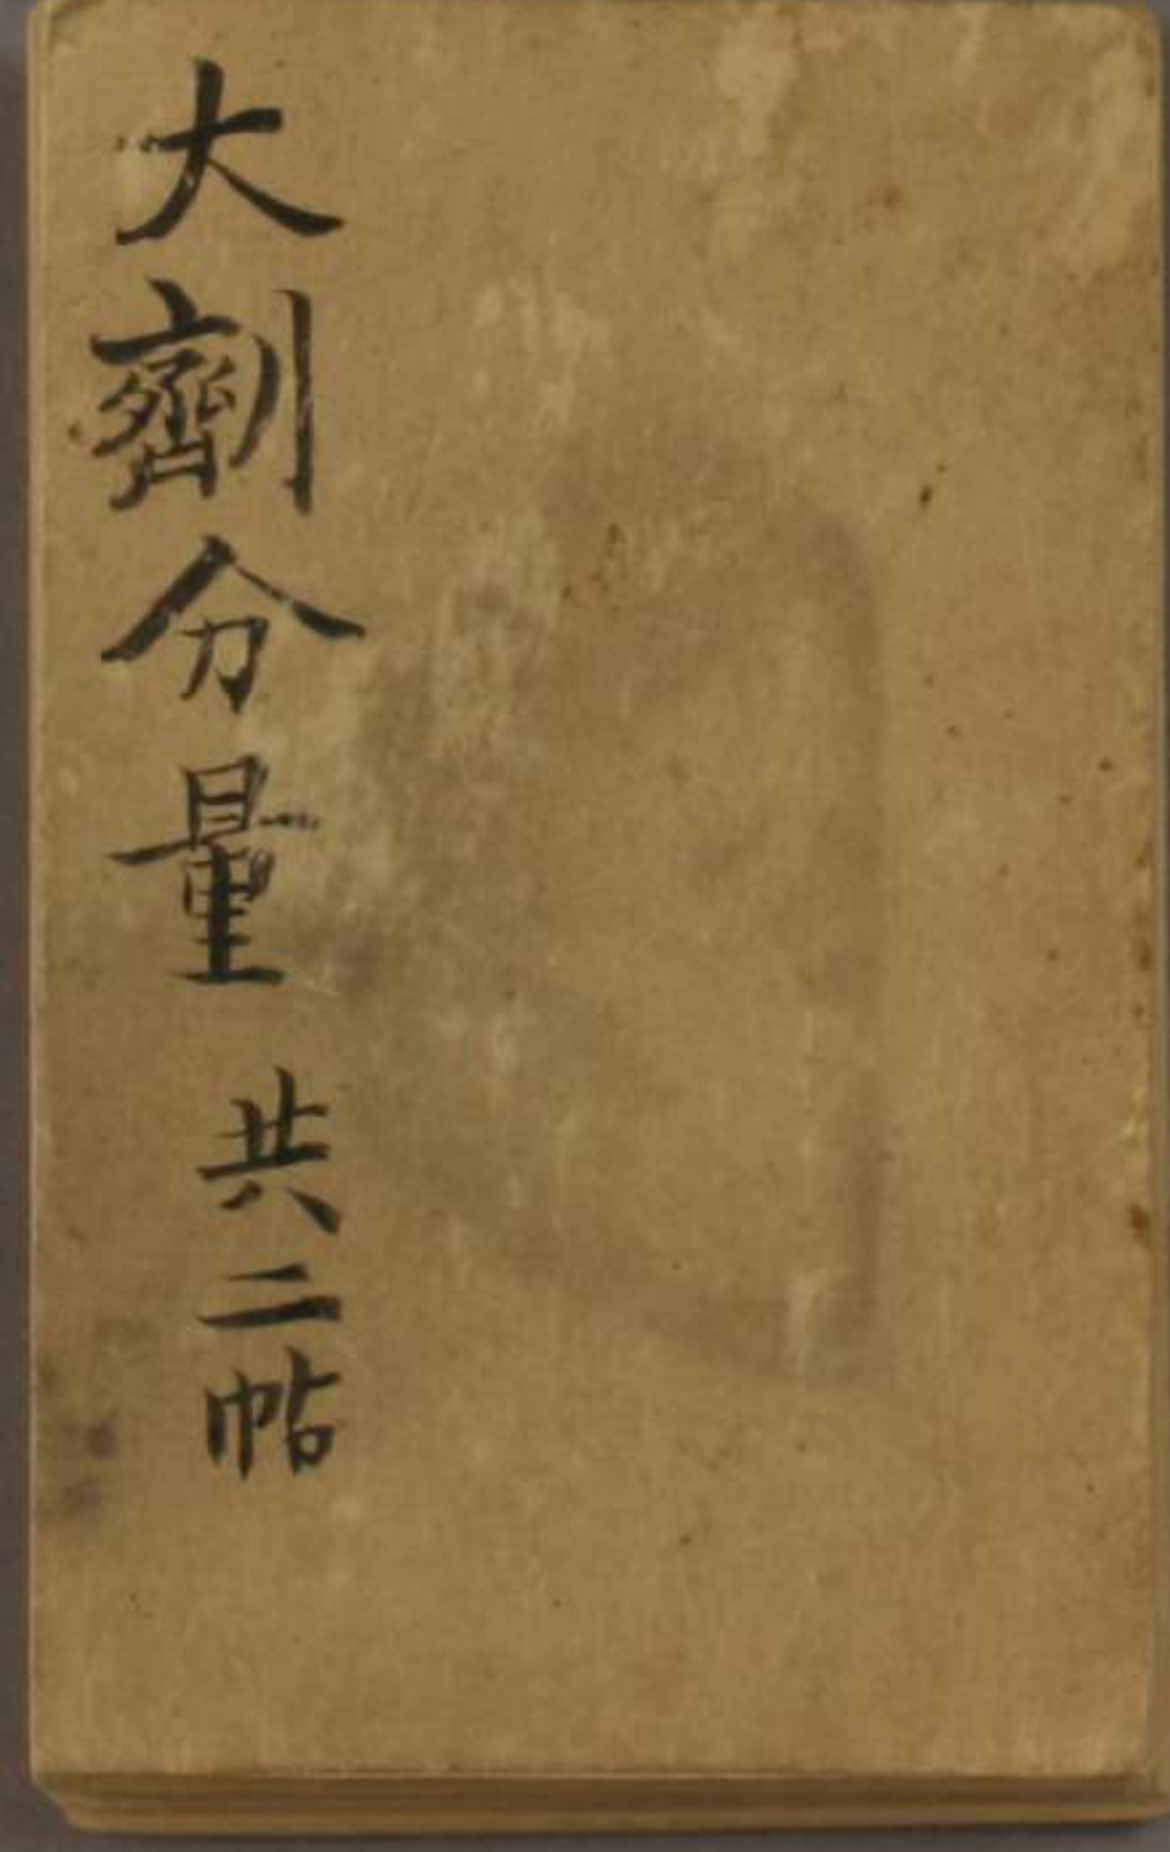 大劑分量 共二帖